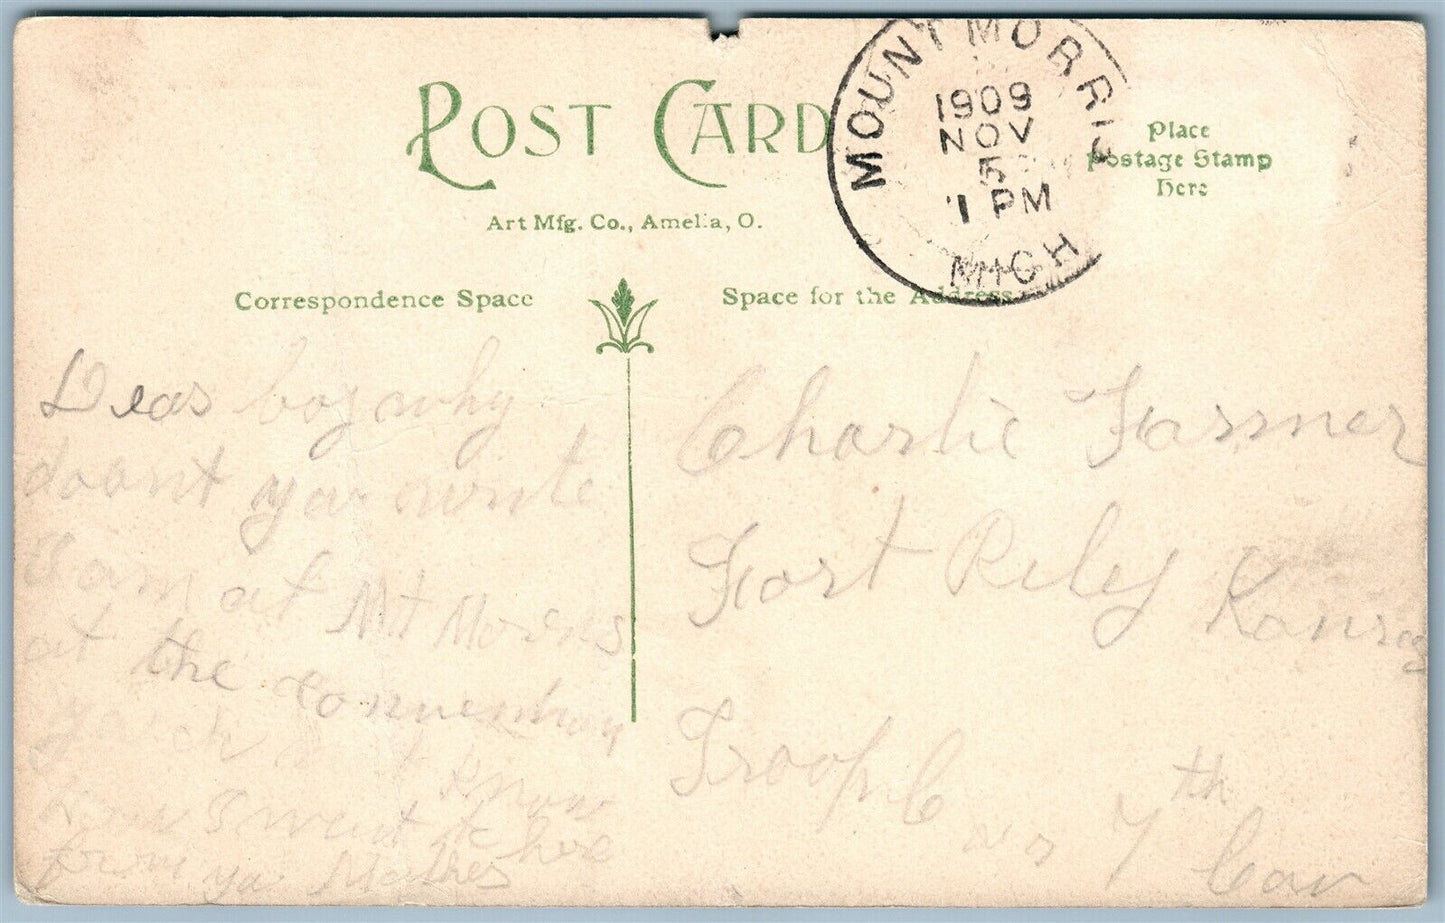 POST CARD
Art Mfg. Co., Amelia, O.
MOUNT MORRIS
1909
NOV
5
1 PM
MICH
Place
Postage Stamp
Here
Correspondence Space
Space for the Address
Dear boy why
doant you write
I am at Mt Morris
at the convention
know
went to here
from ya Mother
Charlie Farmer
Fort Riley
Kansas
Troop C
7th
Cav